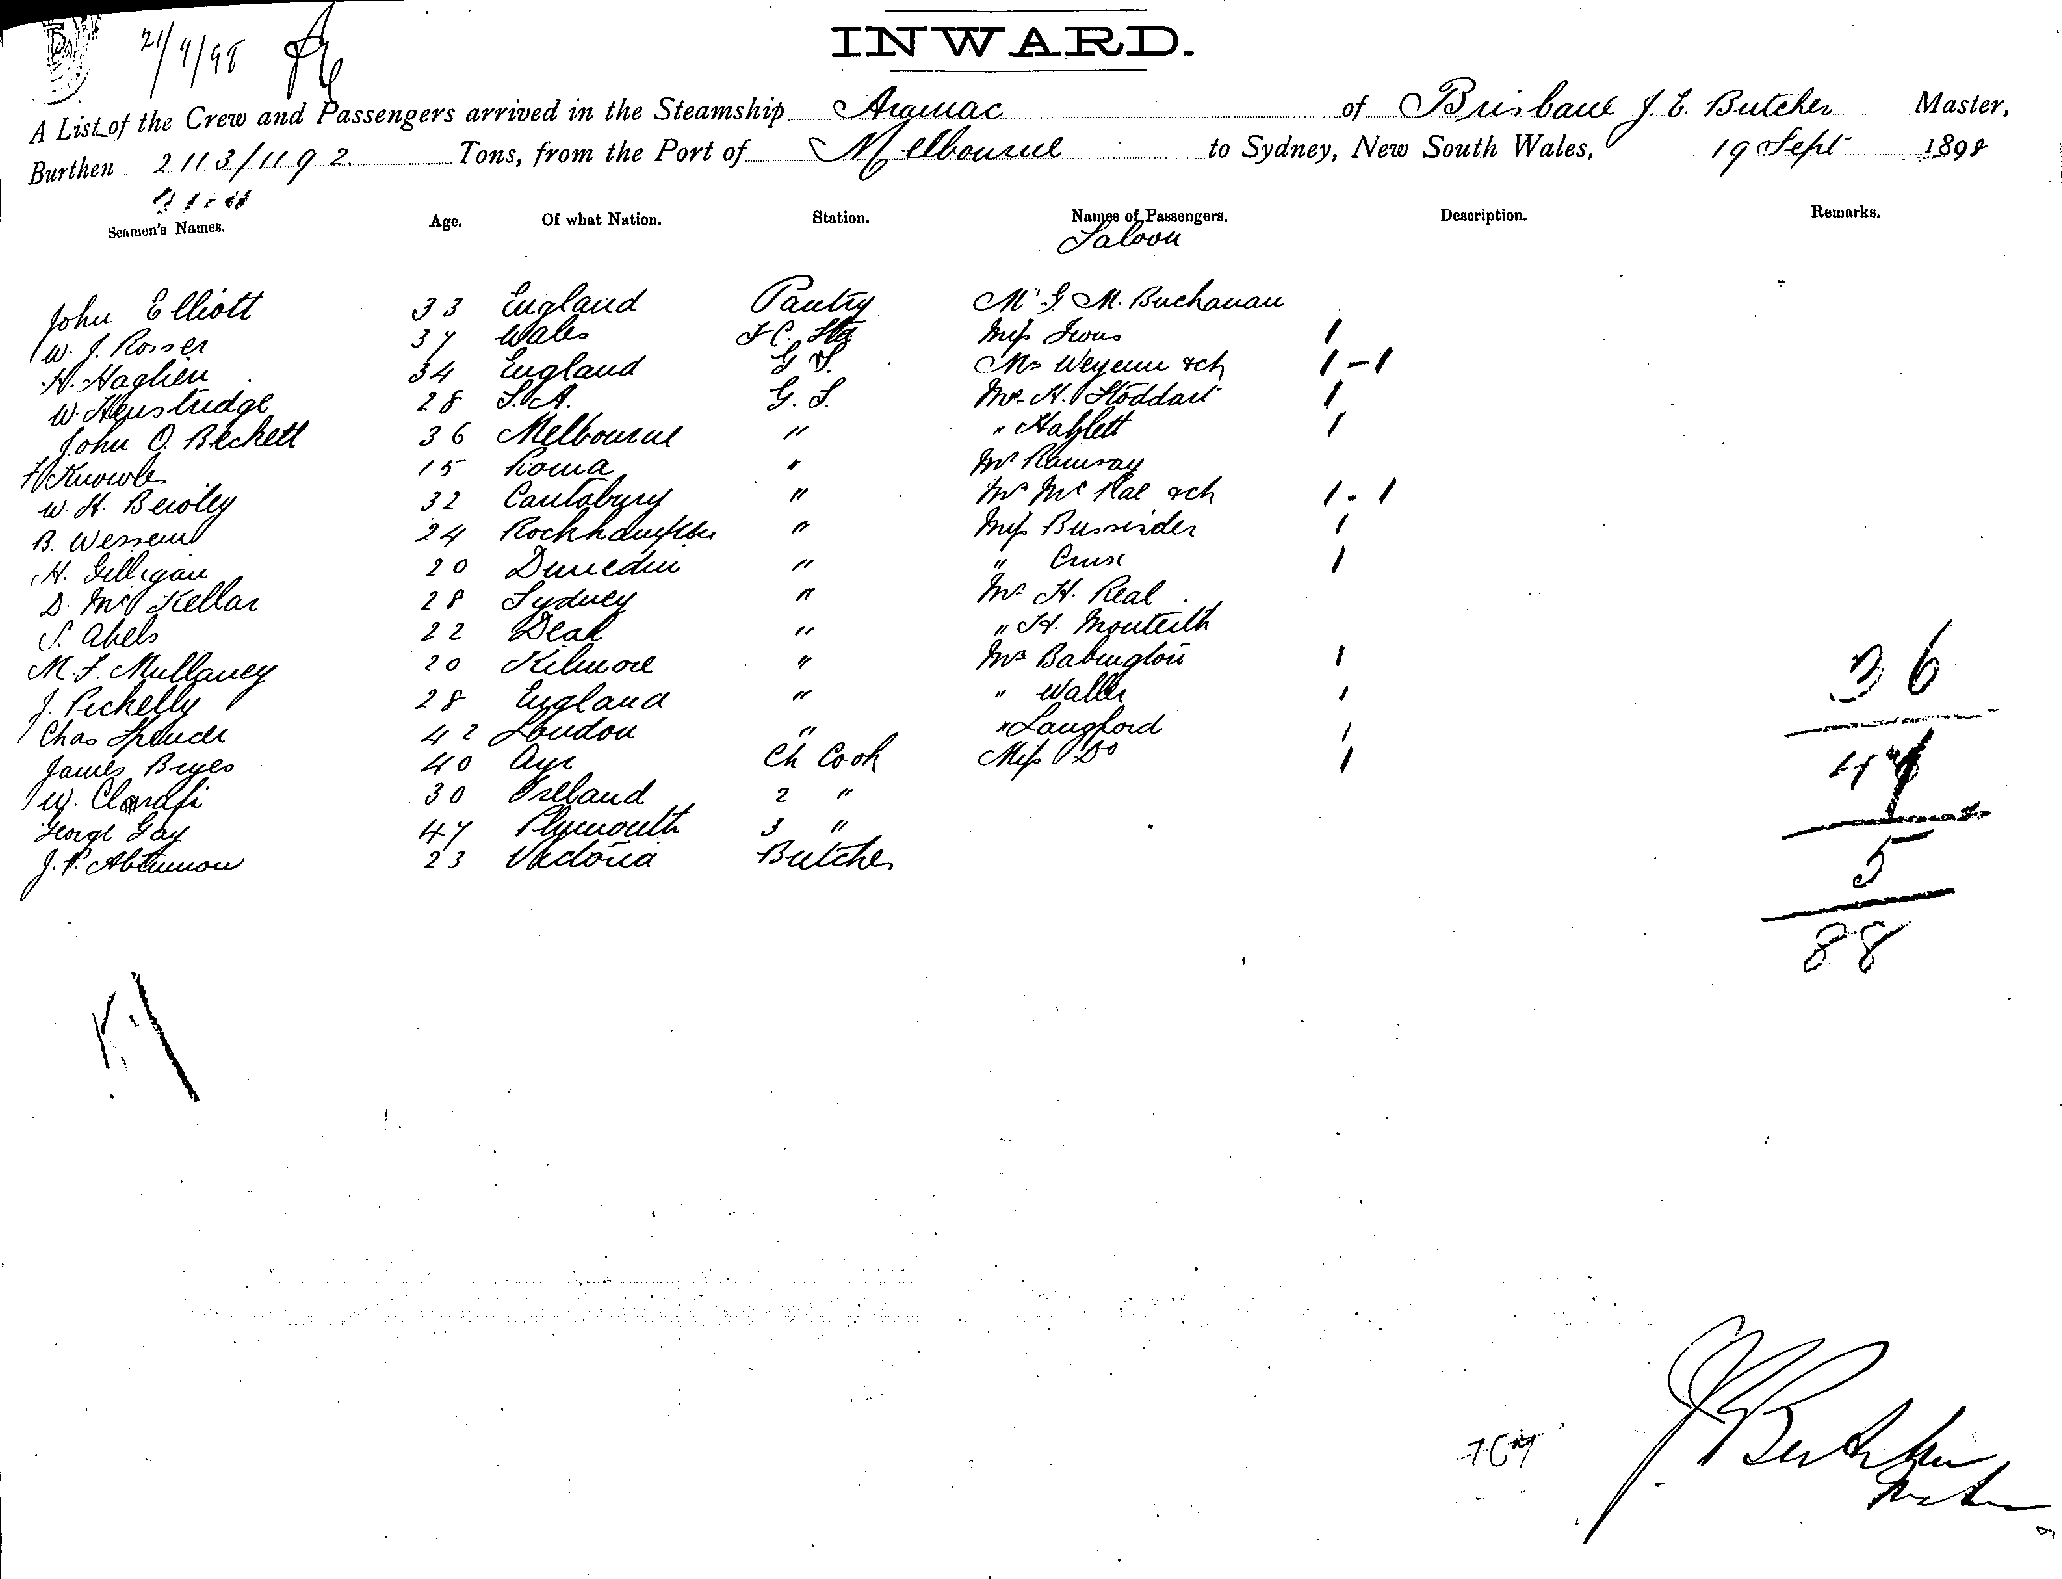 21/9/98
INWARD.
A List of the Crew and Passengers arrived in the Steamship Aramac of Brisbane J. E. Butcher Master,
Burthen 2113/1192 Tons, from the Port of Melbourne to Sydney, New South Wales, 19 Sept 1898
Seamen's Names. Age. Of what Nation. Station. Names of Passengers. Description. Remarks.
Saloon
John Elliott 33 England Pantry Mr G. M. Buchanan
W. J. Rosser 37 Wales Miss 1
H. Haglien 34 England G S. Mrs &ch 1-1
W. Henstridge 28 S. A. G. S. Mrs H. Stoddart 1
John O. Beckett 36 Melbourne " " Hazlett 1
Knowles 15 Roma " Mr Ramsay
W. H. Bewley 32 Cantabury " Mrs McRae &ch 1-1
B. 24 Rockhampton " Miss 1
H. Gilligan 20 Dunedin " " Cruse 1
D. McKellar 28 Sydney " Mr H. Real
S. Abels 22 Deal " " H. Monteith
M. F. Mullaney 20 Kilmore " Mrs Babington 1
J. Pickelly 28 England " " Waller 1
Chas Spencer 42 London " " Langford 1
James Bryes 40 Ayr Ch Cook Miss Do 1
W. 30 Ireland 2 "
George Gay 47 Plymouth 3 "
J. P. 23 Victoria Butcher
36
5
88
J E Butcher
Master